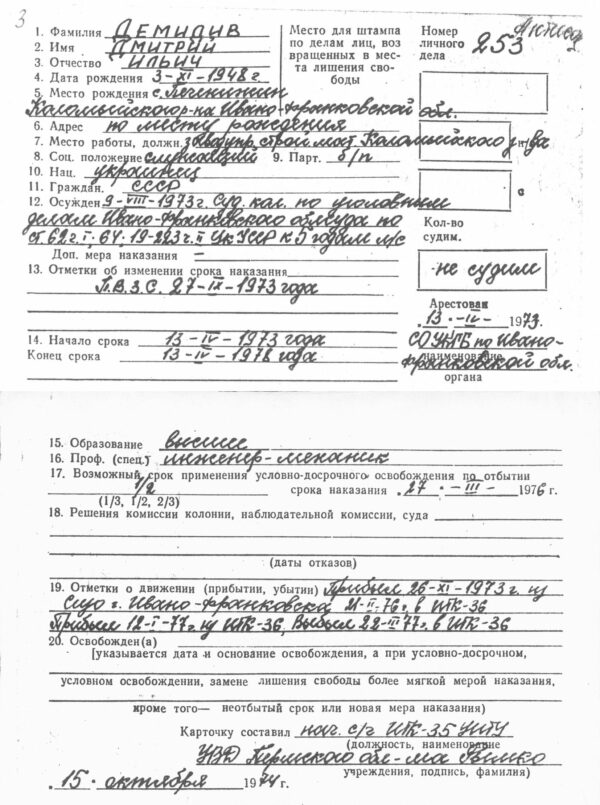 3
1. Фамилия ДЕМИДИВ
2. Имя ДМИТРИЙ
3. Отчество ИЛЬИЧ
4. Дата рождения 3-XI-1948 г.
5. Место рождения с. Печенижин
Коломыйского р-на Ивано-франковской обл.
6. Адрес по месту рождения
7. Место работы, должн. строй. Коломыйского
8. Соц. положение служащий 9. Парт. б/п
10. Нац. украинец
11. Граждан. СССР
12. Осужден 9-VIII-1973 г. Суд. кол. по уголовным
делам Ивано-Франковского облсуда по
ст. 62 ч. I; 64; 19-223 ч. II УК УССР к 5 годам л/с
Доп. мера наказания –
13. Отметки об изменении срока наказания
П.В.З.С. 27-IX-1973 года
14. Начало срока 13-IV-1973 года
Конец срока 13-IV-1978 года
Место для штампа
по делам лиц, воз
вращенных в мес-
та лишения сво-
боды
Номер
личного
дела
253
Кол-во
судим.
не судим
Арестован
13. -IV- 1973.
СО УКГБ по Ивано-
франковской обл.
наименование
органа
15. Образование высшее
16. Проф. (спец.) инженер-механик
17. Возможный срок применения условно-досрочного освобождения по отбытии
1/2 срока наказания 27 -III- 1976 г.
(1/3, 1/2, 2/3)
18. Решения комиссии колонии, наблюдательной комиссии, суда
(даты отказов)
19. Отметки о движении (прибытии, убытии) Прибыл 26-XI-1973 г. из
Сизо г. Ивано-франковска 21-II-76 г. в ИТК-36
Прибыл 12-I-77 г. из ИТК-36, Выбыл 22-III 77 г. в ИТК-36
20. Освобожден(а)
[указывается дата и основание освобождения, а при условно-досрочном,
условном освобождении, замене лишения свободы более мягкой мерой наказания,
кроме того— неотбытый срок или новая мера наказания)
Карточку составил нач. с/ч ИТК-35 УИТУ
(должность, наименование
УВД Пермского обл-ма
учреждения, подпись, фамилия)
15. октября 1974 г.